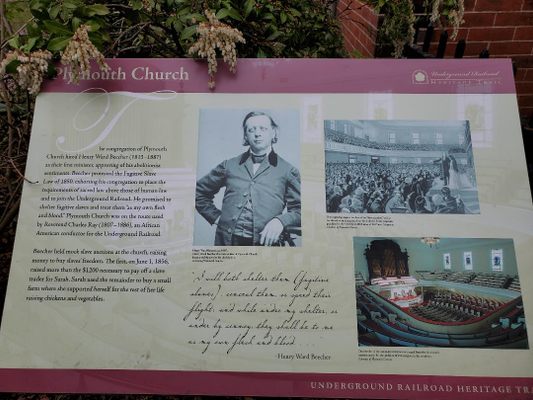 Plymouth Church
UNDERGROUND RAILROAD
HERITAGE TRAIL
The congregation of Plymouth
Church hired Henry Ward Beecher (1813–1887)
as their first minister, approving of his abolitionist
sentiments. Beecher protested the Fugitive Slave
Law of 1850, exhorting his congregation to place the
requirements of sacred law above those of human law
and to join the Underground Railroad. He promised to
shelter fugitive slaves and treat them "as my own flesh
and blood." Plymouth Church was on the route used
by Reverend Charles Ray (1807–1886), an African
American conductor for the Underground Railroad.
Beecher held mock slave auctions at the church, raising
money to buy slaves freedom. The first, on June 1, 1856,
raised more than the $1200 necessary to pay off a slave
trader for Sarah. Sarah used the remainder to buy a small
farm where she supported herself for the rest of her life
raising chickens and vegetables.
I will both shelter them (fugitive
slaves), conceal them, or speed their
flight; and while under my shelter, or
under my convoy, they shall be to me
as my own flesh and blood . . .
-Henry Ward Beecher
UNDERGROUND RAILROAD HERITAGE TRA